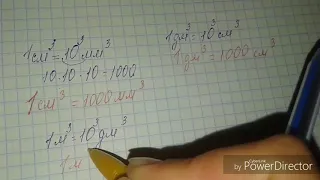 1 см³ = 10³ мм³
10·10·10 = 1000
1 см³ = 1000 мм³
1 дм³ = 10³ см³
1 дм³ = 1000 см³
1 м³ = 10³ дм³
1 м
PowerDirector